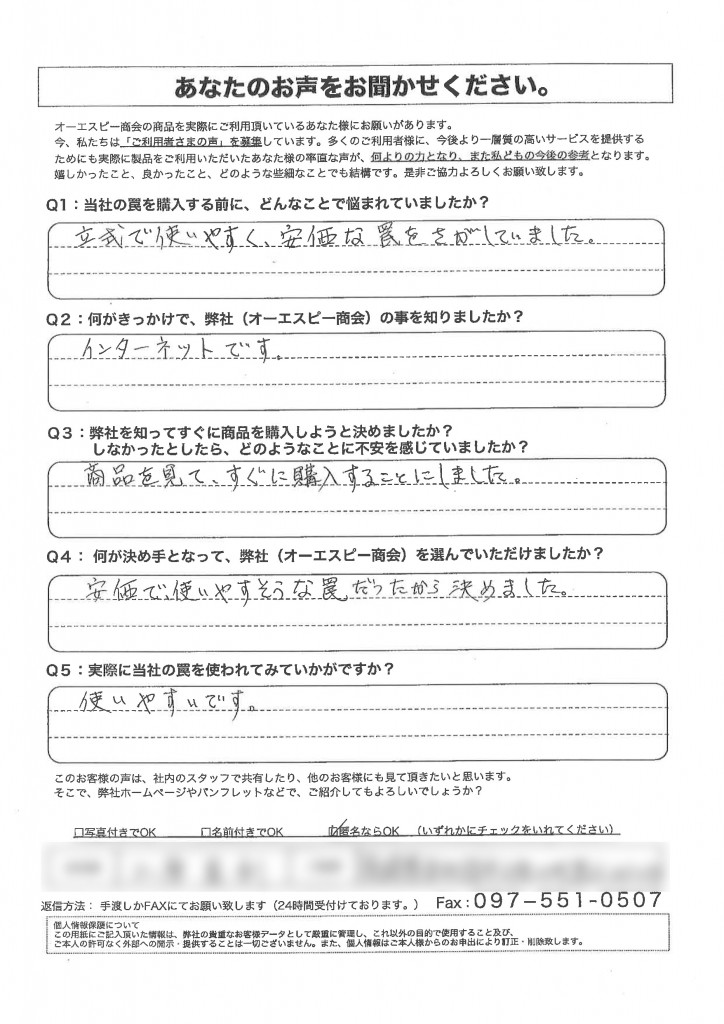 あなたのお声をお聞かせください。
オーエスピー商会の商品を実際にご利用頂いているあなた様にお願いがあります。
今、私たちは「ご利用者さまの声」を募集しています。多くのご利用者様に、今後より一層質の高いサービスを提供する
ためにも実際に製品をご利用いただいたあなた様の率直な声が、何よりの力となり、また私どもの今後の参考となります。
嬉しかったこと、良かったこと、どのような些細なことでも結構です。是非ご協力よろしくお願い致します。
Q1：当社の罠を購入する前に、どんなことで悩まれていましたか？
立式で使いやすく、安価な罠をさがしていました。
Q2：何がきっかけで、弊社（オーエスピー商会）の事を知りましたか？
インターネットです。
Q3：弊社を知ってすぐに商品を購入しようと決めましたか？
しなかったとしたら、どのようなことに不安を感じていましたか？
商品を見て、すぐに購入することにしました。
Q4： 何が決め手となって、弊社（オーエスピー商会）を選んでいただけましたか？
安価で、使いやすそうな罠だったから決めました。
Q5：実際に当社の罠を使われてみていかがですか？
使いやすいです。
このお客様の声は、社内のスタッフで共有したり、他のお客様にも見て頂きたいと思います。
そこで、弊社ホームページやパンフレットなどで、ご紹介してもよろしいでしょうか？
□写真付きでOK □名前付きでOK ☑匿名ならOK （いずれかにチェックをいれてください）
返信方法： 手渡しかFAXにてお願い致します（24時間受付けております。） Fax：097-551-0507
個人情報保護について
この用紙にご記入頂いた情報は、弊社の貴重なお客様データとして厳重に管理し、これ以外の目的で使用すること及び、
ご本人の許可なく外部への開示・提供することは一切ございません。また、個人情報はご本人様からのお申出により訂正・削除致します。